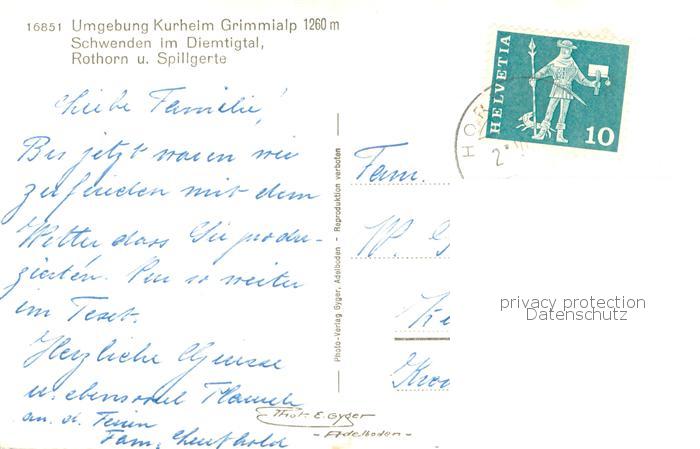 16851 Umgebung Kurheim Grimmialp 1260 m
Schwenden im Diemtigtal,
Rothorn u. Spillgerte
Liebe Familie!
Bis jetzt waren wir
zufrieden mit dem
Wetter dass Sie produ-
zierten. Nur so weiter
im Text.
Herzliche Grüsse
u. ebensoviel Plausch
an. d. Ferien
Fam. Leuthold
Photo-Verlag Gyger, Adelboden - Reproduktion verboten
Fam.
W. G
Ke
Kro
Phot. E. Gyger
- Adelboden -
HELVETIA
10
HOR
2
privacy protection
Datenschutz